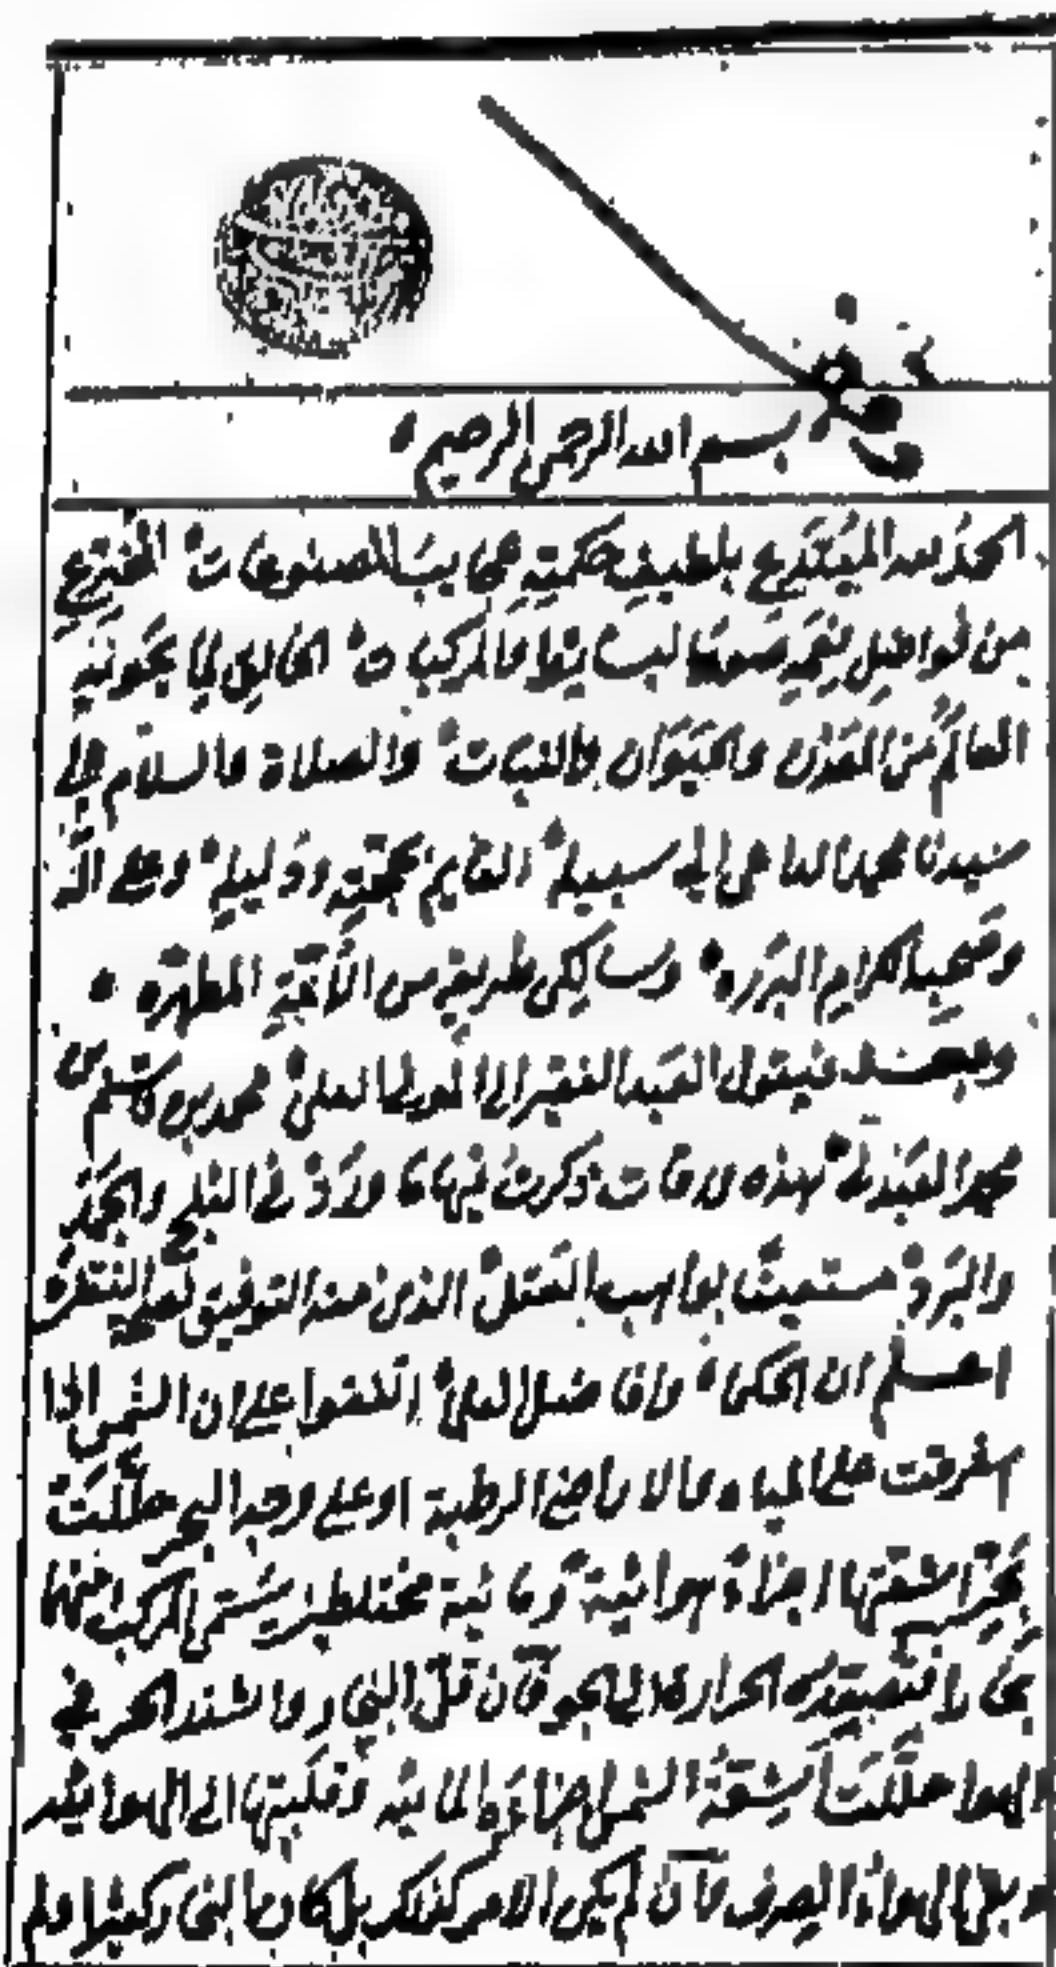 بسم الله الرحمن الرحيم
الحمد لله المبتدع بلطيف حكمته عجايب المصنوعات المخترع
من فواضل نعمه البسايط والمركبات الخالق لما يحويه
العالم من المعدن والحيوان والنبات والصلاة والسلام على
سيدنا محمد الداعي الى سبيله القايم بحجته ودليله وعلى اله
وصحبه الكرام البرره وسالكي طريقه من الأئمة المطهره
وبعد فيقول العبد الفقير الى المولى العلي محمد بن قاسم بن
محمد العبدلي هذه ورقات ذكرت فيها ما ورد في الثلج والجمد
والبرد مستعينا بواهب العقل الذي منه التوفيق
اعلم ان الحكماء وافاضل العلماء اتفقوا على ان الشمس اذا
اشرقت على المياه والاراضي الرطبة او على وجه البحر حللت
بحر اشعتها اجزاء هوائية ومائية مختلطة يسمى المركب منها
بخارا فتصعده الحرارة الى الجو فان قل البخار واشتد الحر في
الهوا حللت اشعة الشمس اجزاءه المائية وقلبتها الى الهوائيه
الهواء الصرف فان لم يكن الامر كذلك بل كان البخار كثيرا ولم